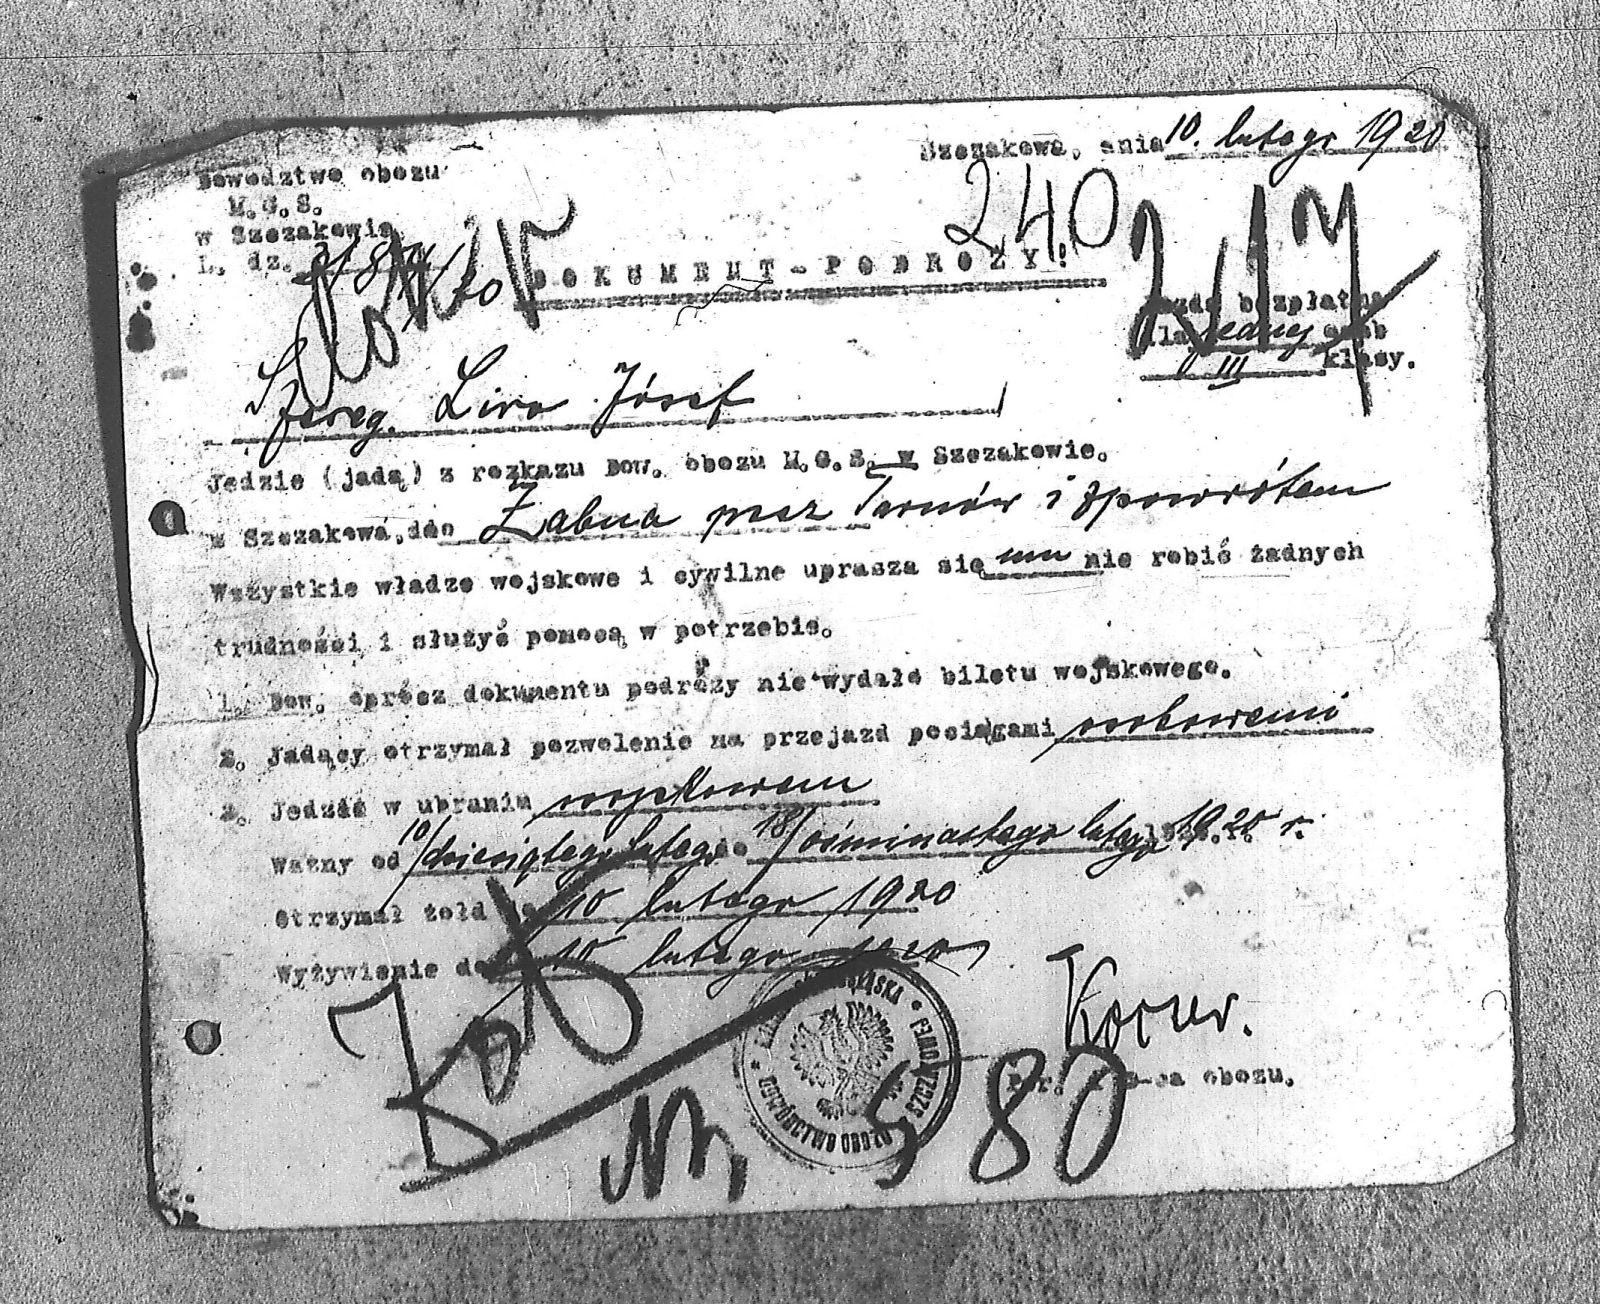 Szczakowa, dnia 10. lutego 1920
Dowództwo obozu
M.G.S.
w Szczakowie
L. dz. /20
240
DOKUMENT-PODROZY!
Jazda bezpłatna
dla jednej osób
III klasy.
Szereg. Lira Józef
Jedzie (jadą) z rozkazu DOW. obozu M.G.S. w Szczakowie.
z Szczakowa, do Żabna przez Tarnów i zpowrotem
Wszystkie władze wojskowe i cywilne uprasza się mu nie robić żadnych
trudności i służyć pomocą w potrzebie.
1. Dow. oprócz dokumentu podróży nie wydało biletu wojskowego.
2. Jadący otrzymał pozwolenie na przejazd pociągami osobowemi
3. Jedzie w ubraniu wojskowem
Ważny od 10/dziesiątego lutego do 18/ośminastego lutego 1920 r.
Otrzymał żołd do 10 lutego 1920
Wyżywienie do 10 lutego 1920
DOWÓDZTWO OBOZU
por. obozu.
Nr. 580